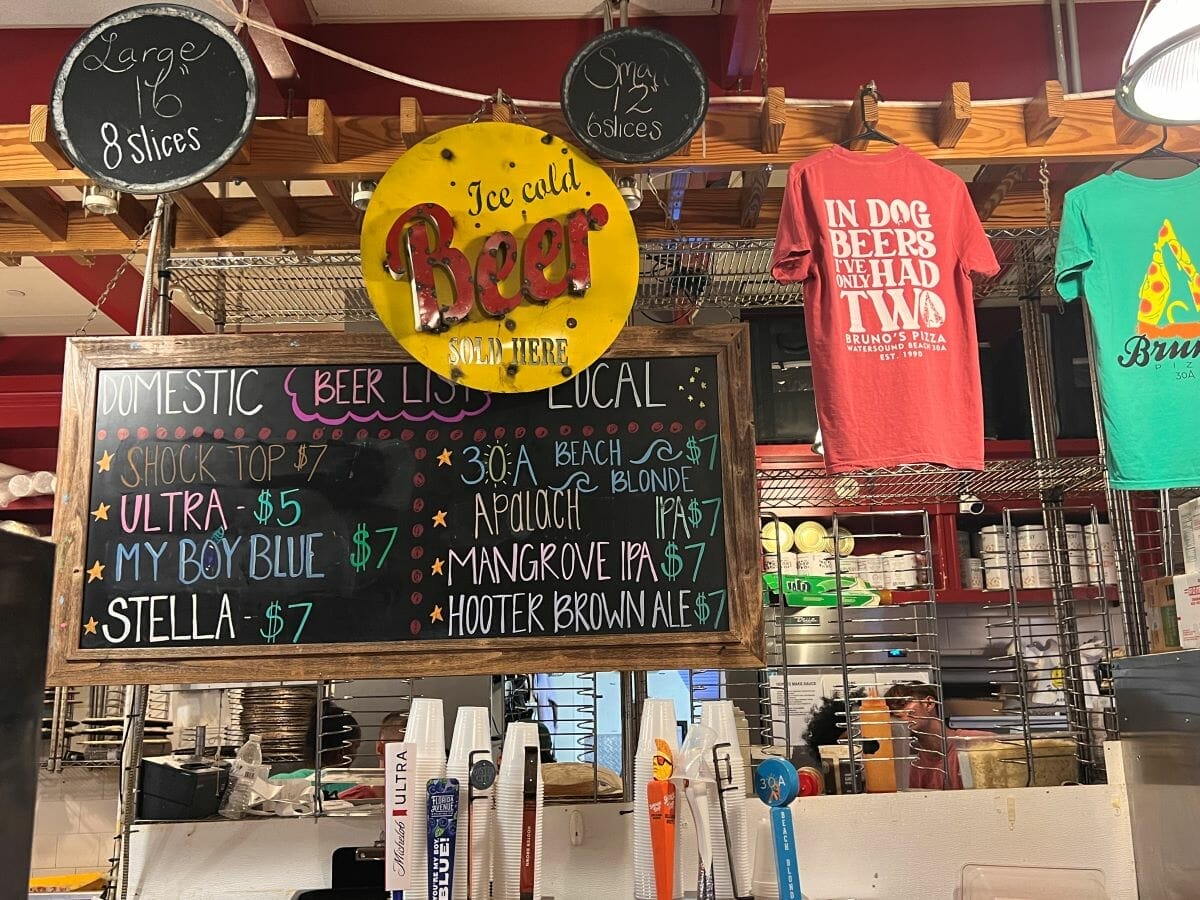 Large
16"
8 slices
Small
12"
6 slices
Ice cold
Beer
SOLD HERE
IN DOG
BEERS
I'VE
ONLY HAD
TWO
BRUNO'S PIZZA
WATERSOUND BEACH 30A
EST. 1990
30A
DOMESTIC
BEER LIST
LOCAL
SHOCK TOP $7
ULTRA - $5
MY BOY BLUE $7
STELLA - $7
30A BEACH BLONDE $7
APALACH IPA $7
MANGROVE IPA $7
HOOTER BROWN ALE $7
Michelob ULTRA
FLORIDA
AVENUE
YOU'RE MY BOY,
BLUE!
HOOTER BROWN
30A
BEACH BLONDE